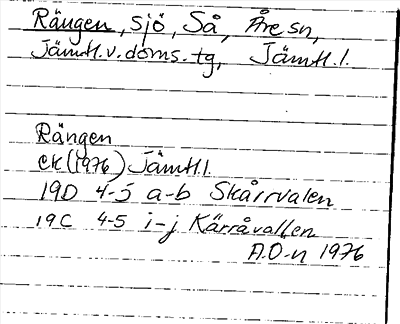 Rängen, sjö, Så, Åre sn,
Jämtl.v.doms.tg, Jämtl.l.
Rängen
EK(1976) Jämtl.l.
19D 4-5 a-b Skårrvalen
19C 4-5 i-j Kärråvallen
A.O-n 1976